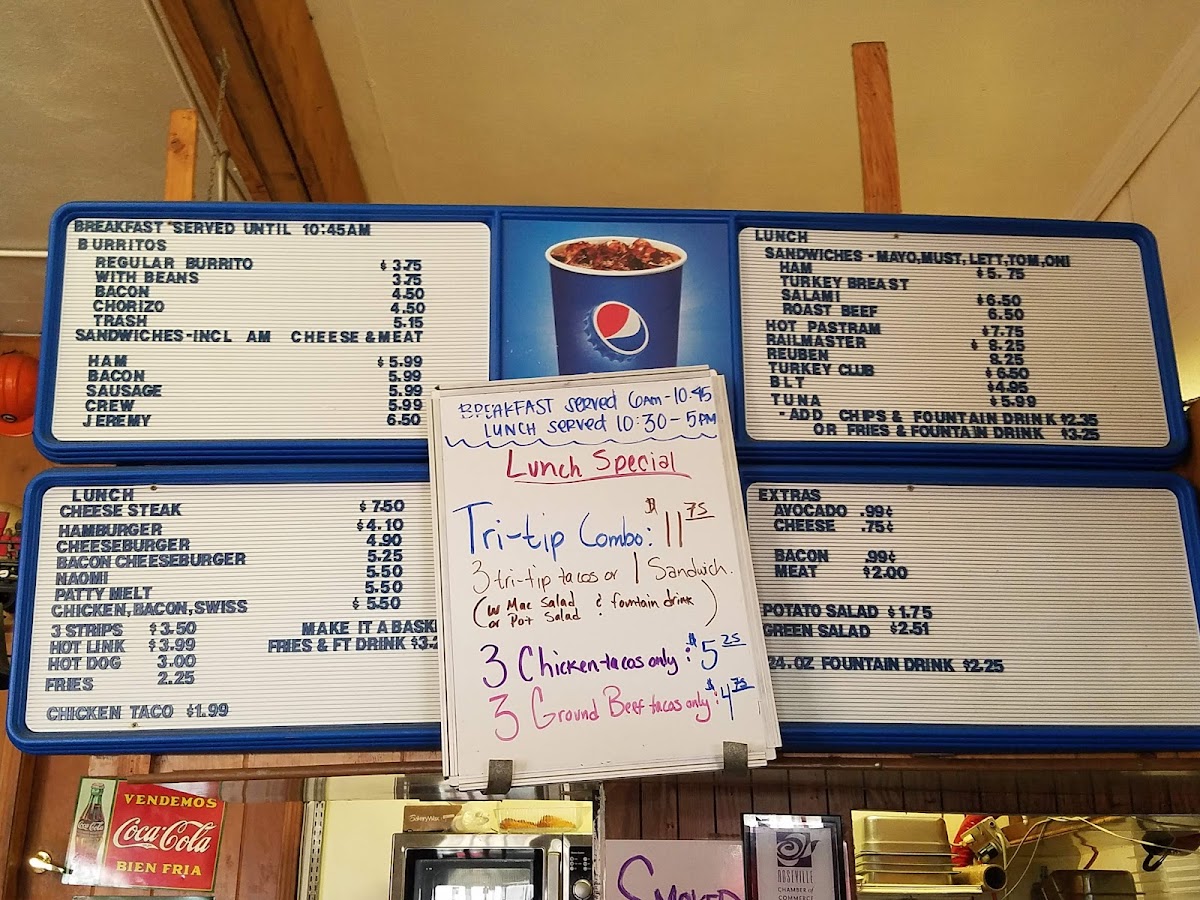 BREAKFAST SERVED UNTIL 10:45AM
BURRITOS
REGULAR BURRITO $3.75
WITH BEANS 3.75
BACON 4.50
CHORIZO 4.50
TRASH 5.15
SANDWICHES-INCL AM CHEESE & MEAT
HAM $5.99
BACON 5.99
SAUSAGE 5.99
CREW 5.99
JEREMY 6.50
LUNCH
SANDWICHES - MAYO,MUST,LETT,TOM,ONI
HAM $5.75
TURKEY BREAST
SALAMI $6.50
ROAST BEEF 6.50
HOT PASTRAM $7.75
RAILMASTER $8.25
REUBEN 8.25
TURKEY CLUB $6.50
BLT $4.95
TUNA $5.99
-ADD CHIPS & FOUNTAIN DRINK $2.35
OR FRIES & FOUNTAIN DRINK $3.25
BREAKFAST served 6AM-10:45
LUNCH served 10:30-5PM
Lunch Special
Tri-tip Combo: $11 75
3 tri-tip tacos or 1 Sandwich.
(w Mac Salad & fountain drink)
or Pot Salad
3 Chicken tacos only: $5 25
3 Ground Beef tacos only: $4 75
LUNCH
CHEESE STEAK $7.50
HAMBURGER $4.10
CHEESEBURGER 4.90
BACON CHEESEBURGER 5.25
NAOMI 5.50
PATTY MELT 5.50
CHICKEN,BACON,SWISS $5.50
3 STRIPS $3.50
HOT LINK $3.99
HOT DOG 3.00
FRIES 2.25
MAKE IT A BASK
FRIES & FT DRINK $3.2
CHICKEN TACO $1.99
EXTRAS
AVOCADO .99¢
CHEESE .75¢
BACON .99¢
MEAT $2.00
POTATO SALAD $1.75
GREEN SALAD $2.51
24.OZ FOUNTAIN DRINK $2.25
VENDEMOS
Coca-Cola
BIEN FRIA
SMOKED
ROSEVILLE
CHAMBER of
COMMERCE